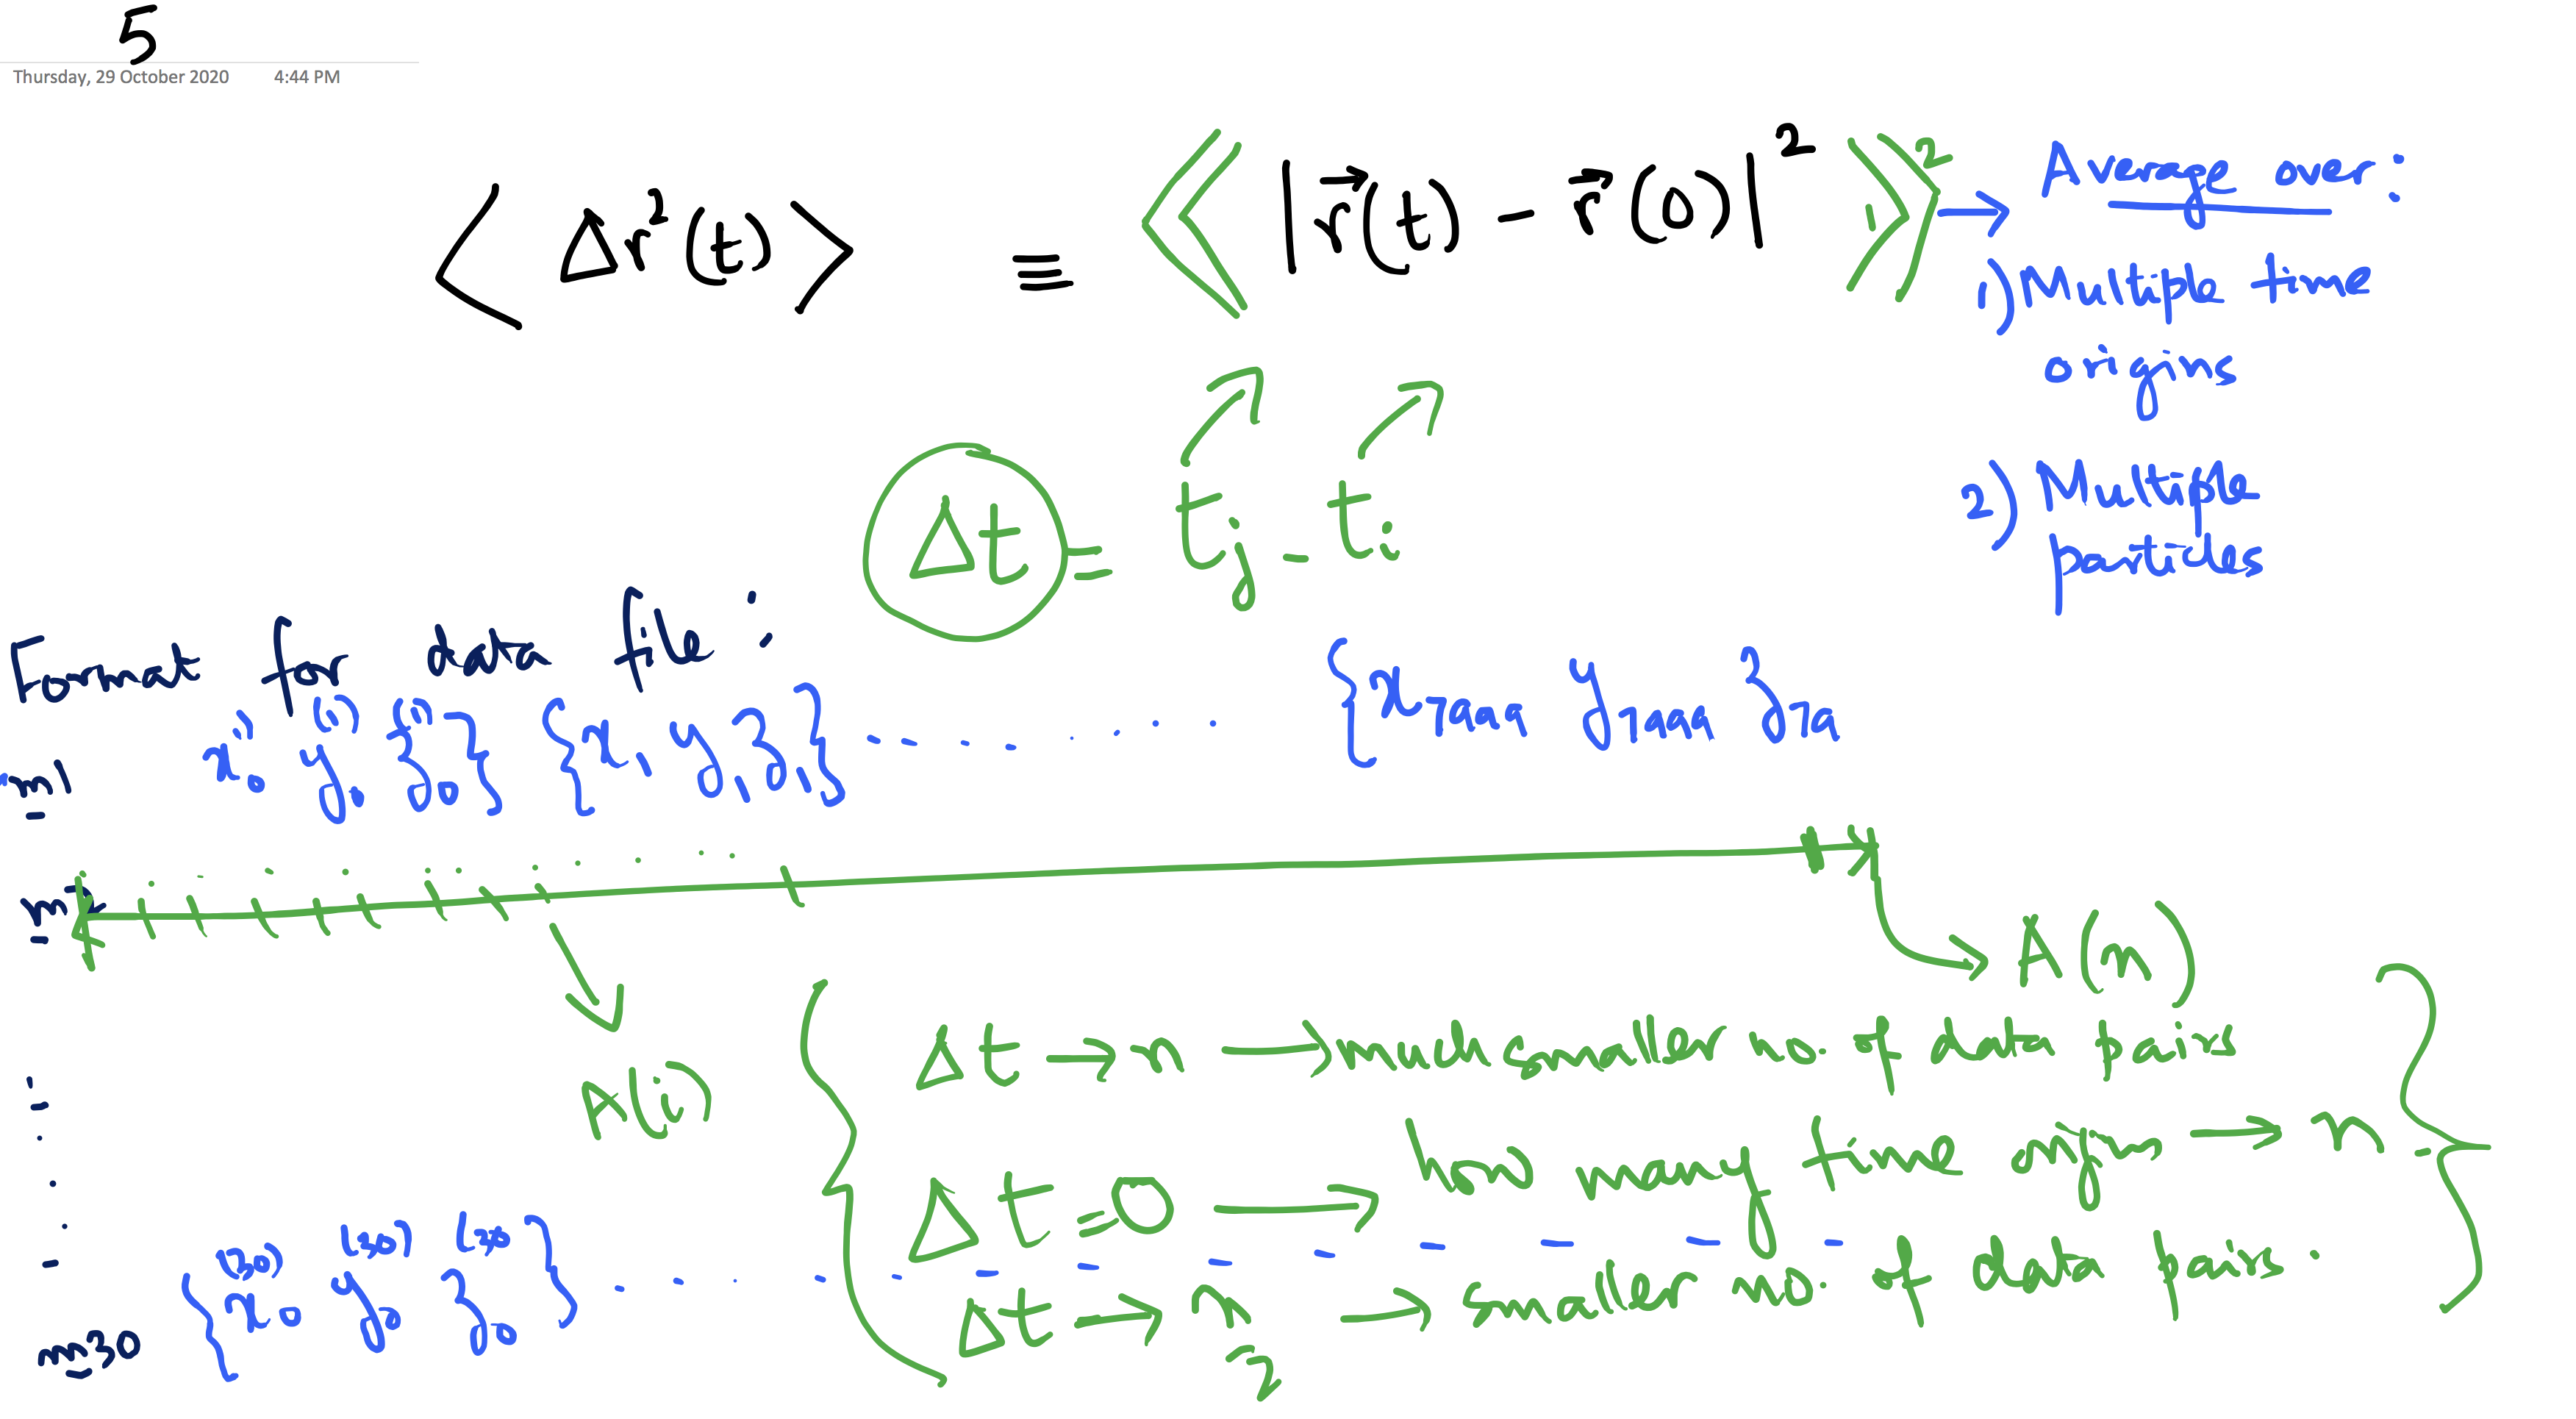 5
Thursday, 29 October 2020 4:44 PM
⟨ Δr²(t) ⟩ ≡ ⟨⟨ |r⃗(t) − r⃗(0)|² ⟩₁⟩² → Average over:
1) Multiple time
origins
2) Multiple
particles
Δt = tⱼ − tᵢ
Format for data file :
m1 x₀⁽¹⁾ y₀⁽¹⁾ z₀⁽¹⁾} {x₁ y₁ z₁} ........ {x₇₉₉₉ y₇₉₉₉ z₇₉
m2
A(i)
A(n)
Δt → n → much smaller no. of data pairs
Δt = 0 → how many time origins → n
Δt → n/2 → smaller no. of data pairs.
m30 {x₀⁽³⁰⁾ y₀⁽³⁰⁾ z₀⁽³⁰} ........